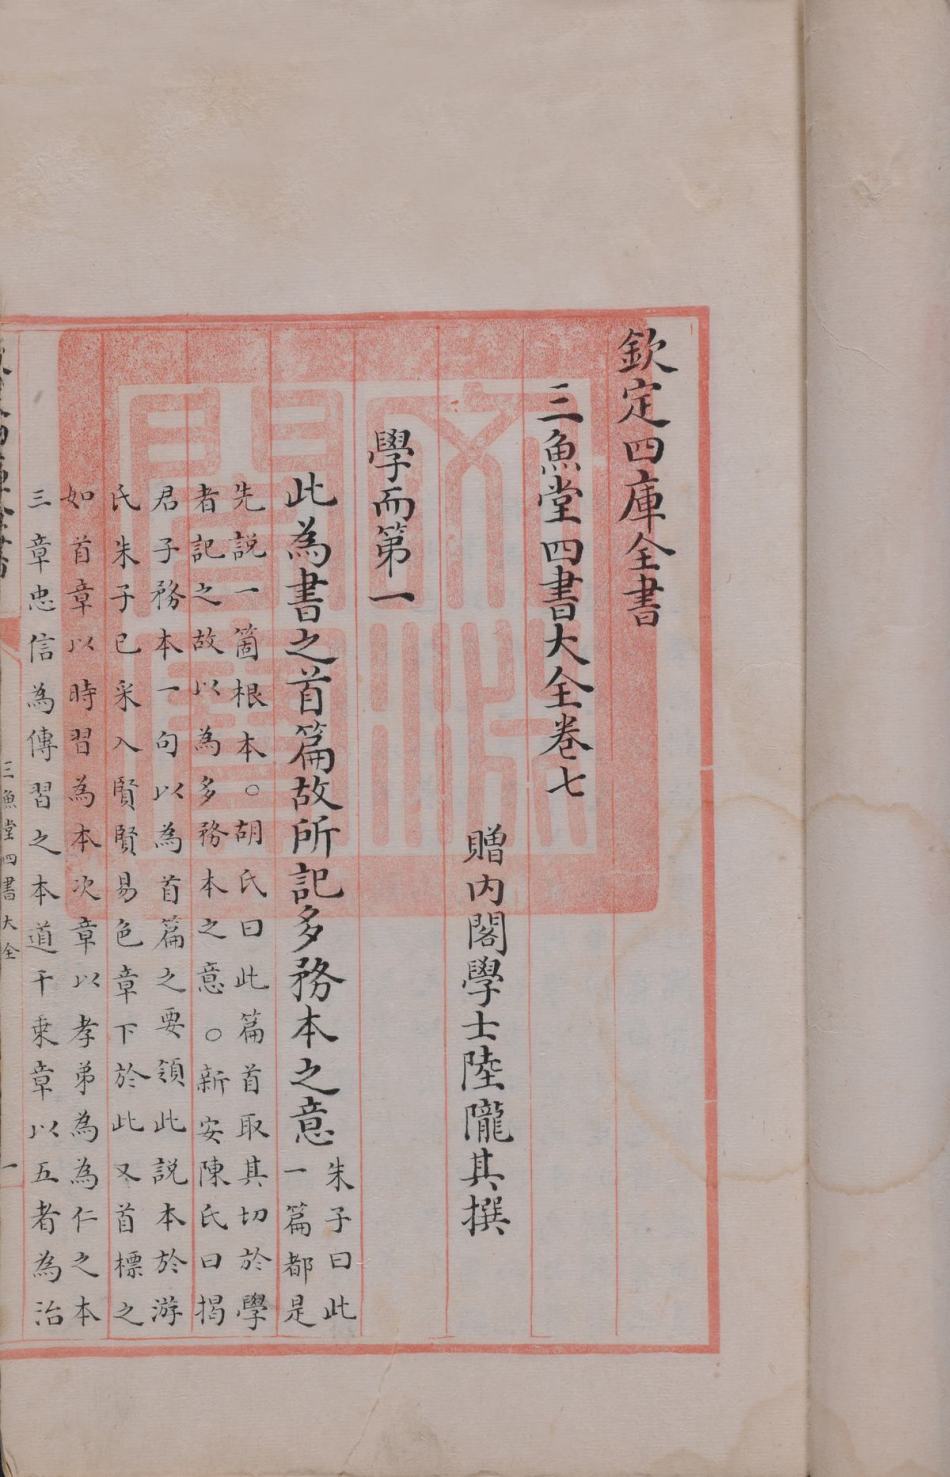 欽定四庫全書
三魚堂四書大全卷七
贈內閣學士陸隴其撰
學而第一
此為書之首篇故所記多務本之意
朱子曰此
一篇都是
先說一箇根本。胡氏曰此篇首取其切於學
者記之故以為多務本之意。新安陳氏曰揭
君子務本一句以為首篇之要領此說本於游
氏朱子已采入賢賢易色章下於此又首標之
如首章以時習為本次章以孝弟為為仁之本
三章忠信為傳習之本道千乘章以五者為治
三魚堂四書大全
一
文淵閣寶